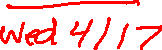 Wed 4/17